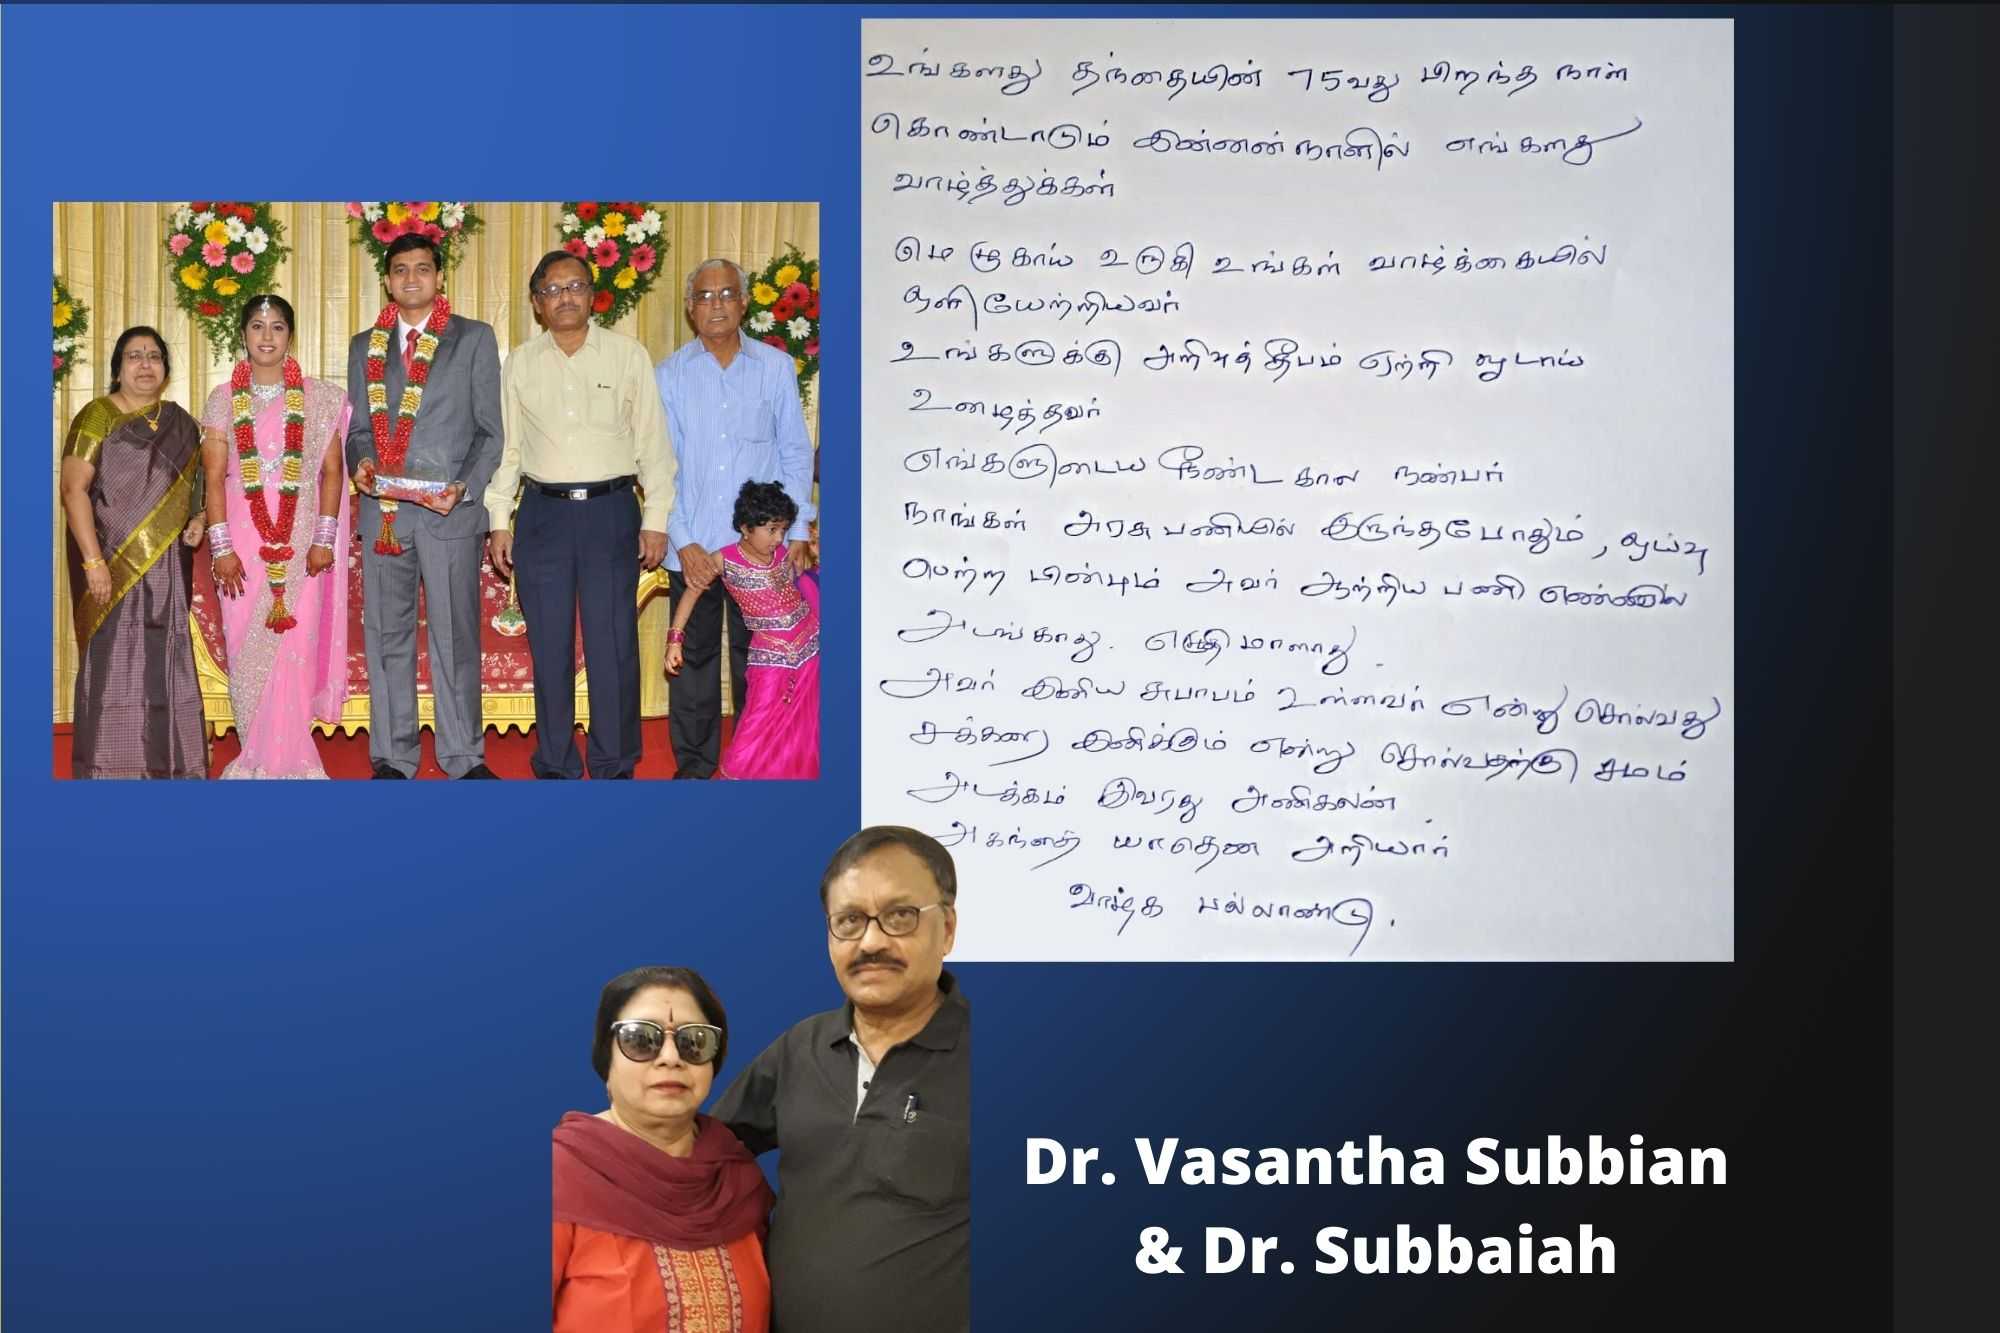 உங்களது தந்தையின் 75வது பிறந்த நாள்
கொண்டாடும் இன்னன்நாளில் எங்களது
வாழ்த்துக்கள்
மெழுகாய் உருகி உங்கள் வாழ்க்கையில்
ஒளியேற்றியவர்
உங்களுக்கு அறிவுத் தீபம் ஏற்றி
உழைத்தவர்
எங்களுடைய நீண்ட கால நண்பர்
நாங்கள் அரசு பணியில் இருந்தபோதும், ஓய்வு
பெற்ற பின்பும் அவர் ஆற்றிய பணி எண்ணில்
அடங்காது. எழுதி மாளாது.
அவர் இனிய சுபாபம் உள்ளவர் என்று சொல்வது
சக்கரை இனிக்கும் என்று சொல்வதற்கு சமம்
அடக்கம் இவரது அணிகலன்
அகந்தை யாதென அறியார்
வாழ்க பல்லாண்டு.
Dr. Vasantha Subbian
& Dr. Subbaiah